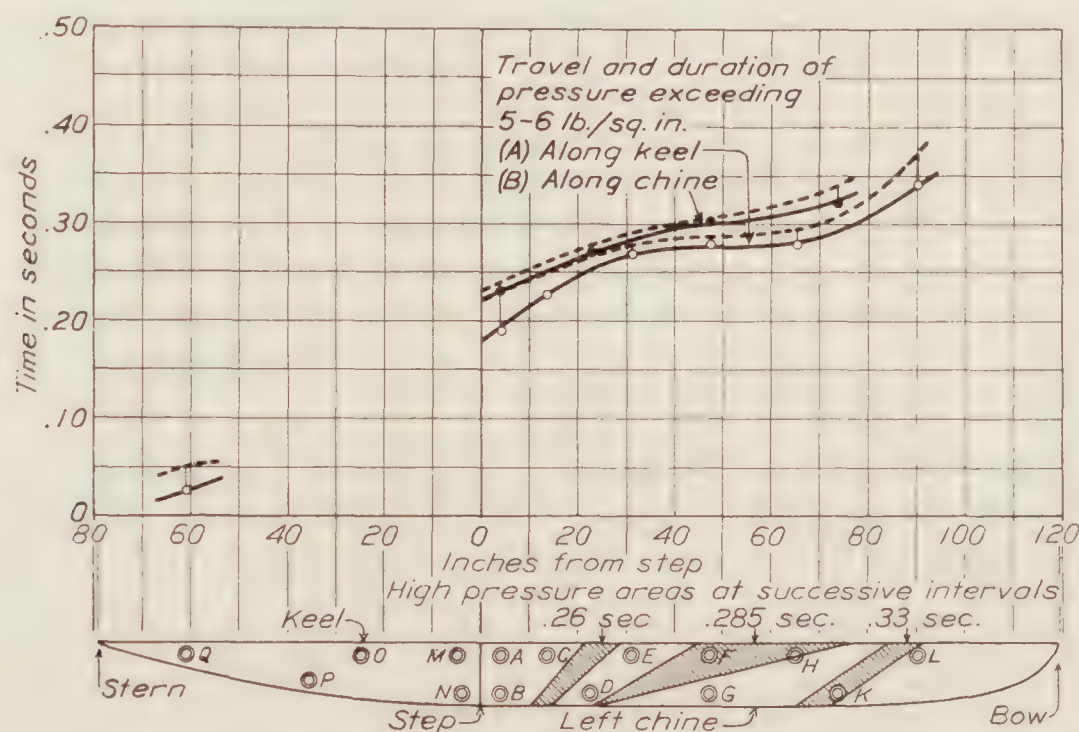 .50
.40
.30
.20
.10
0
Time in seconds
Travel and duration of
pressure exceeding
5-6 lb./sq. in.
(A) Along keel
(B) Along chine
80 60 40 20 0 20 40 60 80 100 120
Inches from step
High pressure areas at successive intervals
.26 sec .285 sec. .33 sec.
Keel
Q O M A C E F H L
P N B D G K
Stern
Step
Left chine
Bow